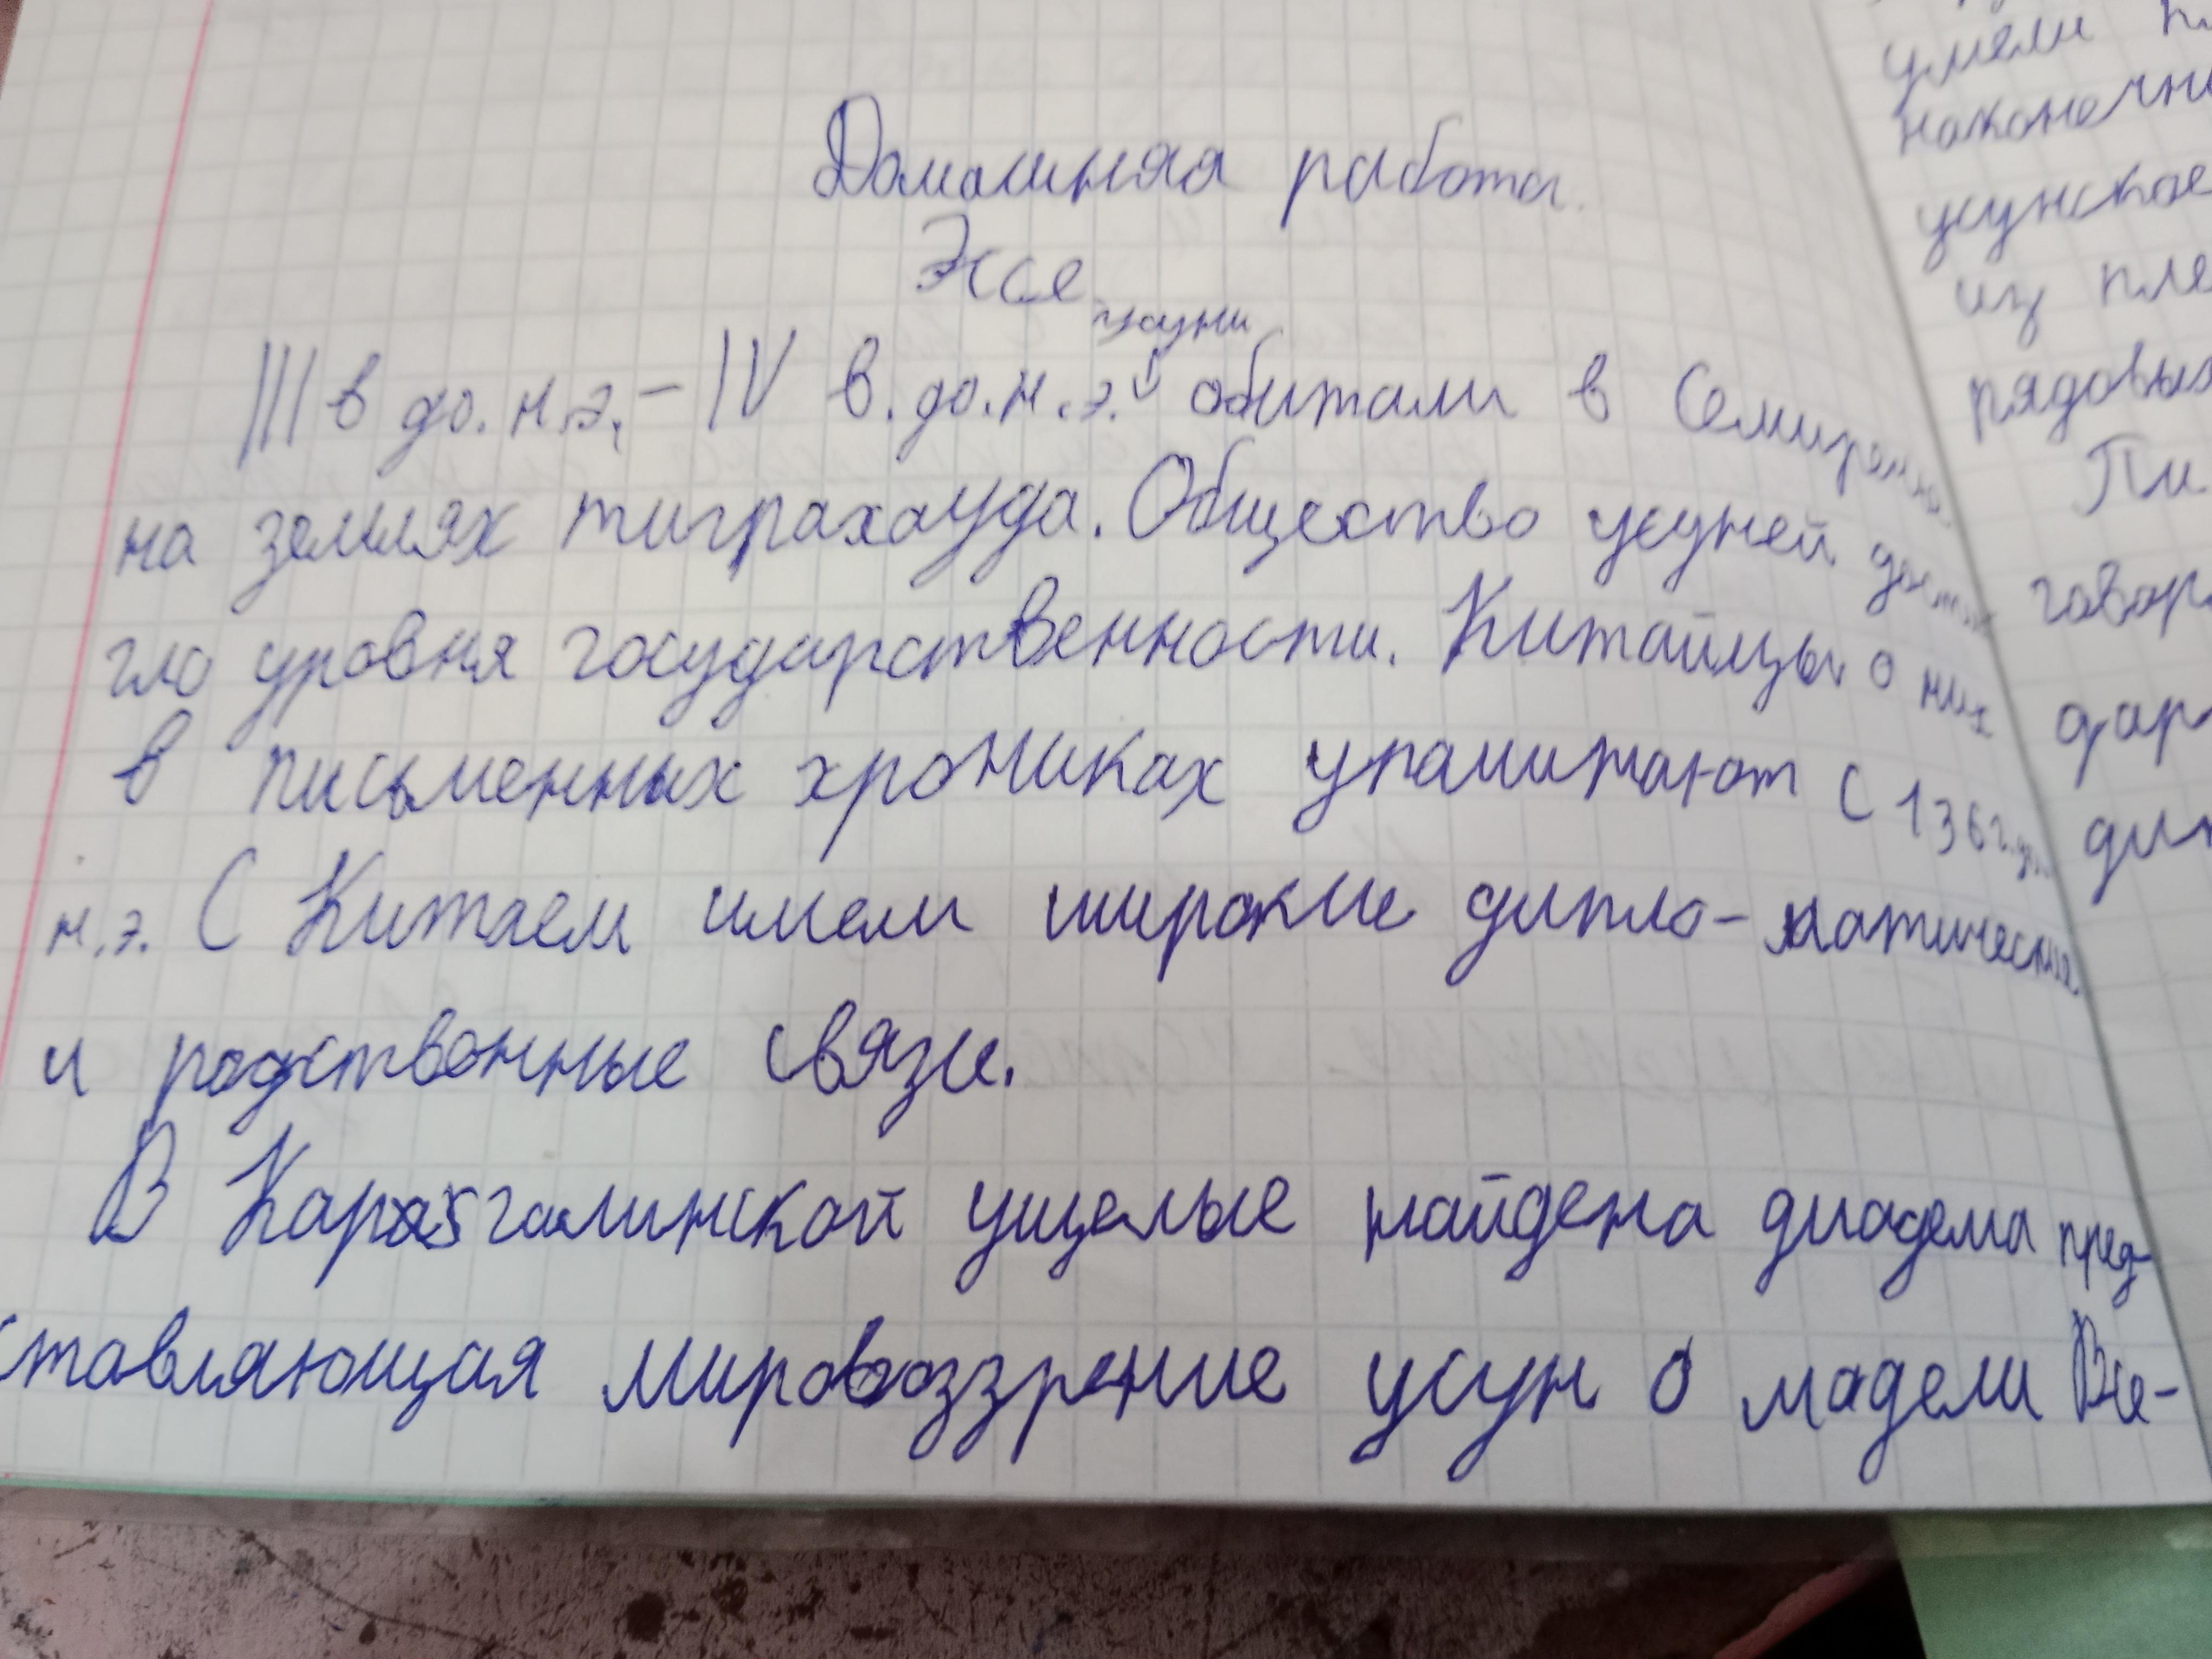 Домашняя работа.
Эссе
усуни
III в до. н.э. – IV в. до. н.э. обитали в
на землях тиграхауда. Общество усуней дости
гло уровня государственности. Китайцы о них
в письменных хрониках упаминают с 136 г. до
н.э. С Китаем имели широкие дипло- матические
и родственные связи.
В ущелье найдена диадема пред-
ставляющая мировоззрение усун о мадели Все-
умели
наконечни
усунское
из пле
рядовых
Пи
говор